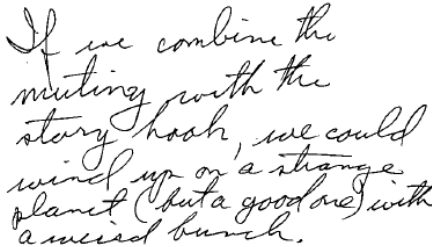 If we combine the
muting with the
story hook, we could
wind up on a strange
planet (but a good one) with
a weird bunch.